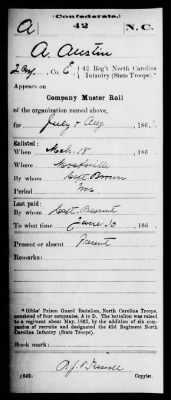 (Confederate.)
A 42 N.C.
A. Austin
Co. E, 42 Reg't North Carolina
Infantry (State Troops).*
Appears on
Company Muster Roll
of the organization named above,
for July & Aug, 186
Enlisted:
When Mch 18, 186
Where
By whom Capt Brown
Period War
Last paid:
By whom Capt
To what time June 30, 186
Present or absent Present
Remarks:
*Gibbs' Prison Guard Battalion, North Carolina Troops,
consisted of four companies, A to D. The battalion was raised
to a regiment about May, 1862, by the addition of six com-
panies of recruits and designated the 42d Regiment North
Carolina Infantry (State Troops).
Book mark:
(642) Copyist.